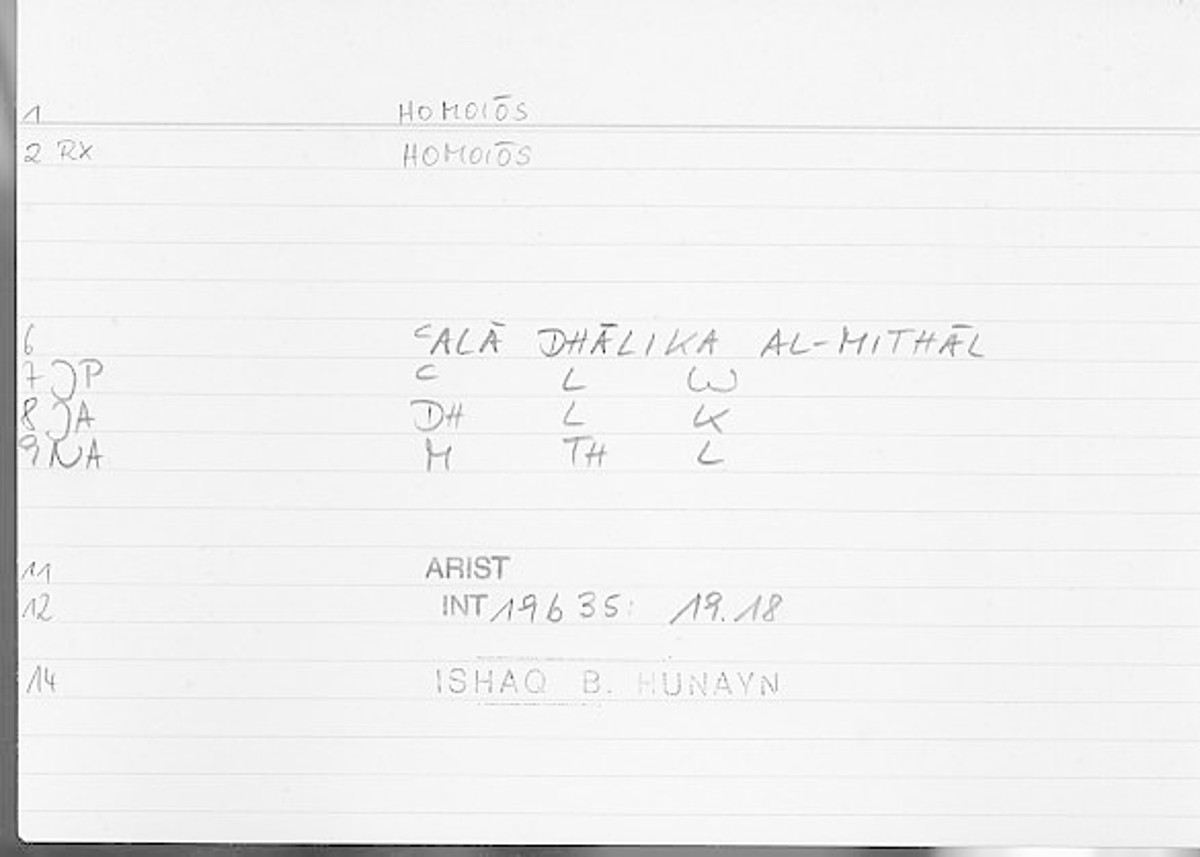 1 HOMOIŌS
2 RX HOMOIŌS
6 ʿALĀ DHĀLIKA AL-MITHĀL
7 JP ʿ L W
8 JA DH L K
9 NA M TH L
11 ARIST
12 INT 19b 35: 19.18
14 ISHAQ B. HUNAYN